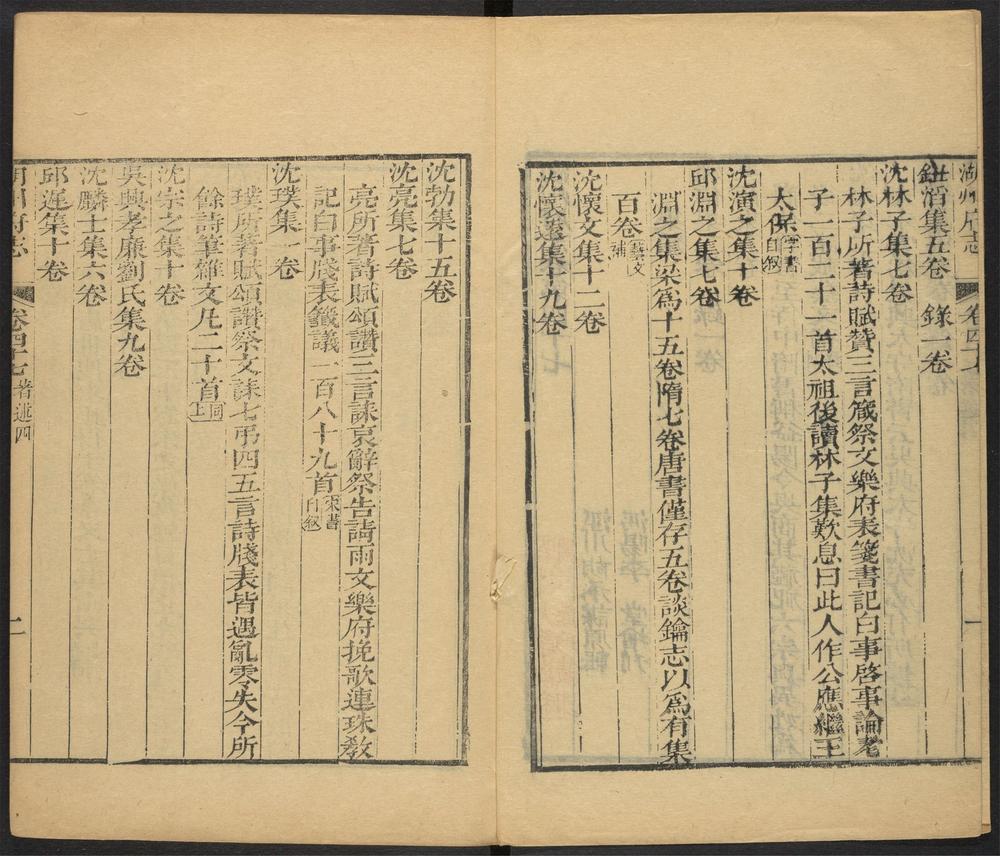 湖州府志
卷四十七
一
鈕滔集五卷 錄一卷
沈林子集七卷
林子所著詩賦贊三言箴祭文樂府表箋書記白事啓事論老
子一百二十一首太祖後讀林子集歎息曰此人作公應繼王
太保宋書自叙
沈演之集十卷
邱淵之集七卷
淵之集梁爲十五卷隋七卷唐書僅存五卷談鑰志以爲有集
百卷藝文補
沈懷文集十二卷
沈懷遠集十九卷
沈勃集十五卷
沈亮集七卷
亮所著詩賦頌讚三言誄哀辭祭告請雨文樂府挽歌連珠敎
記白事牋表籤議一百八十九首宋書自叙
沈璞集一卷
璞所著賦頌讚祭文誄七弔四五言詩牋表皆遇亂零失今所
餘詩筆雜文凡二十首同上
沈宗之集十卷
吳興孝廉劉氏集九卷
沈麟士集六卷
邱遲集十卷
湖州府志
卷四十七 著述四
二